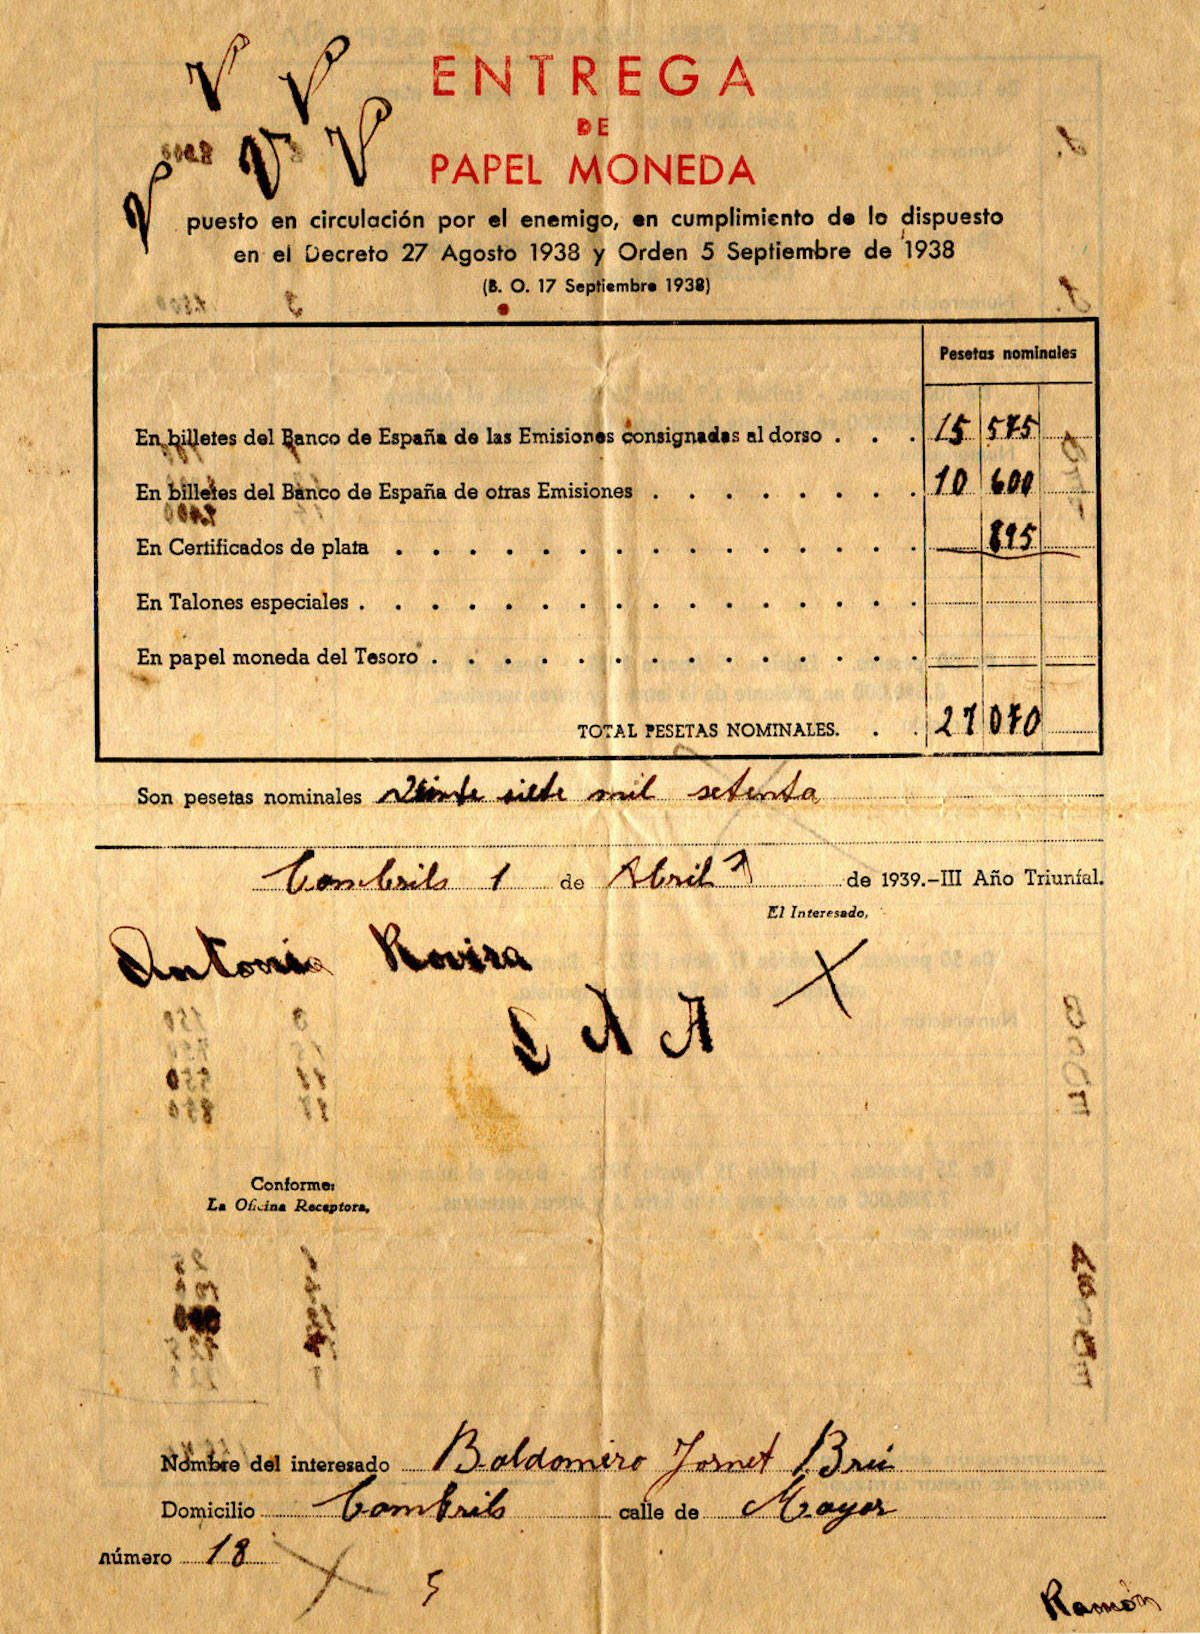 V V V V V
ENTREGA
DE
PAPEL MONEDA
puesto en circulación por el enemigo, en cumplimiento de lo dispuesto
en el Decreto 27 Agosto 1938 y Orden 5 Septiembre de 1938
(B. O. 17 Septiembre 1938)
Pesetas nominales
En billetes del Banco de España de las Emisiones consignadas al dorso . . . 15 575
En billetes del Banco de España de otras Emisiones . . . . . . . . . 10 600
En Certificados de plata . . . . . . . . . . . . . . . . . . 895
En Talones especiales . . . . . . . . . . . . . . . . . . .
En papel moneda del Tesoro . . . . . . . . . . . . . . . . .
TOTAL PESETAS NOMINALES. . . 27 070
Son pesetas nominales Veinte siete mil setenta
Cambrils 1 de Abril de 1939.-III Año Triunfal.
El Interesado,
Antonia Rovira
Conforme:
La Oficina Receptora,
Nombre del interesado Baldomero Jornet Brú
Domicilio Cambrils calle de Mayor
número 18
5
Ramón